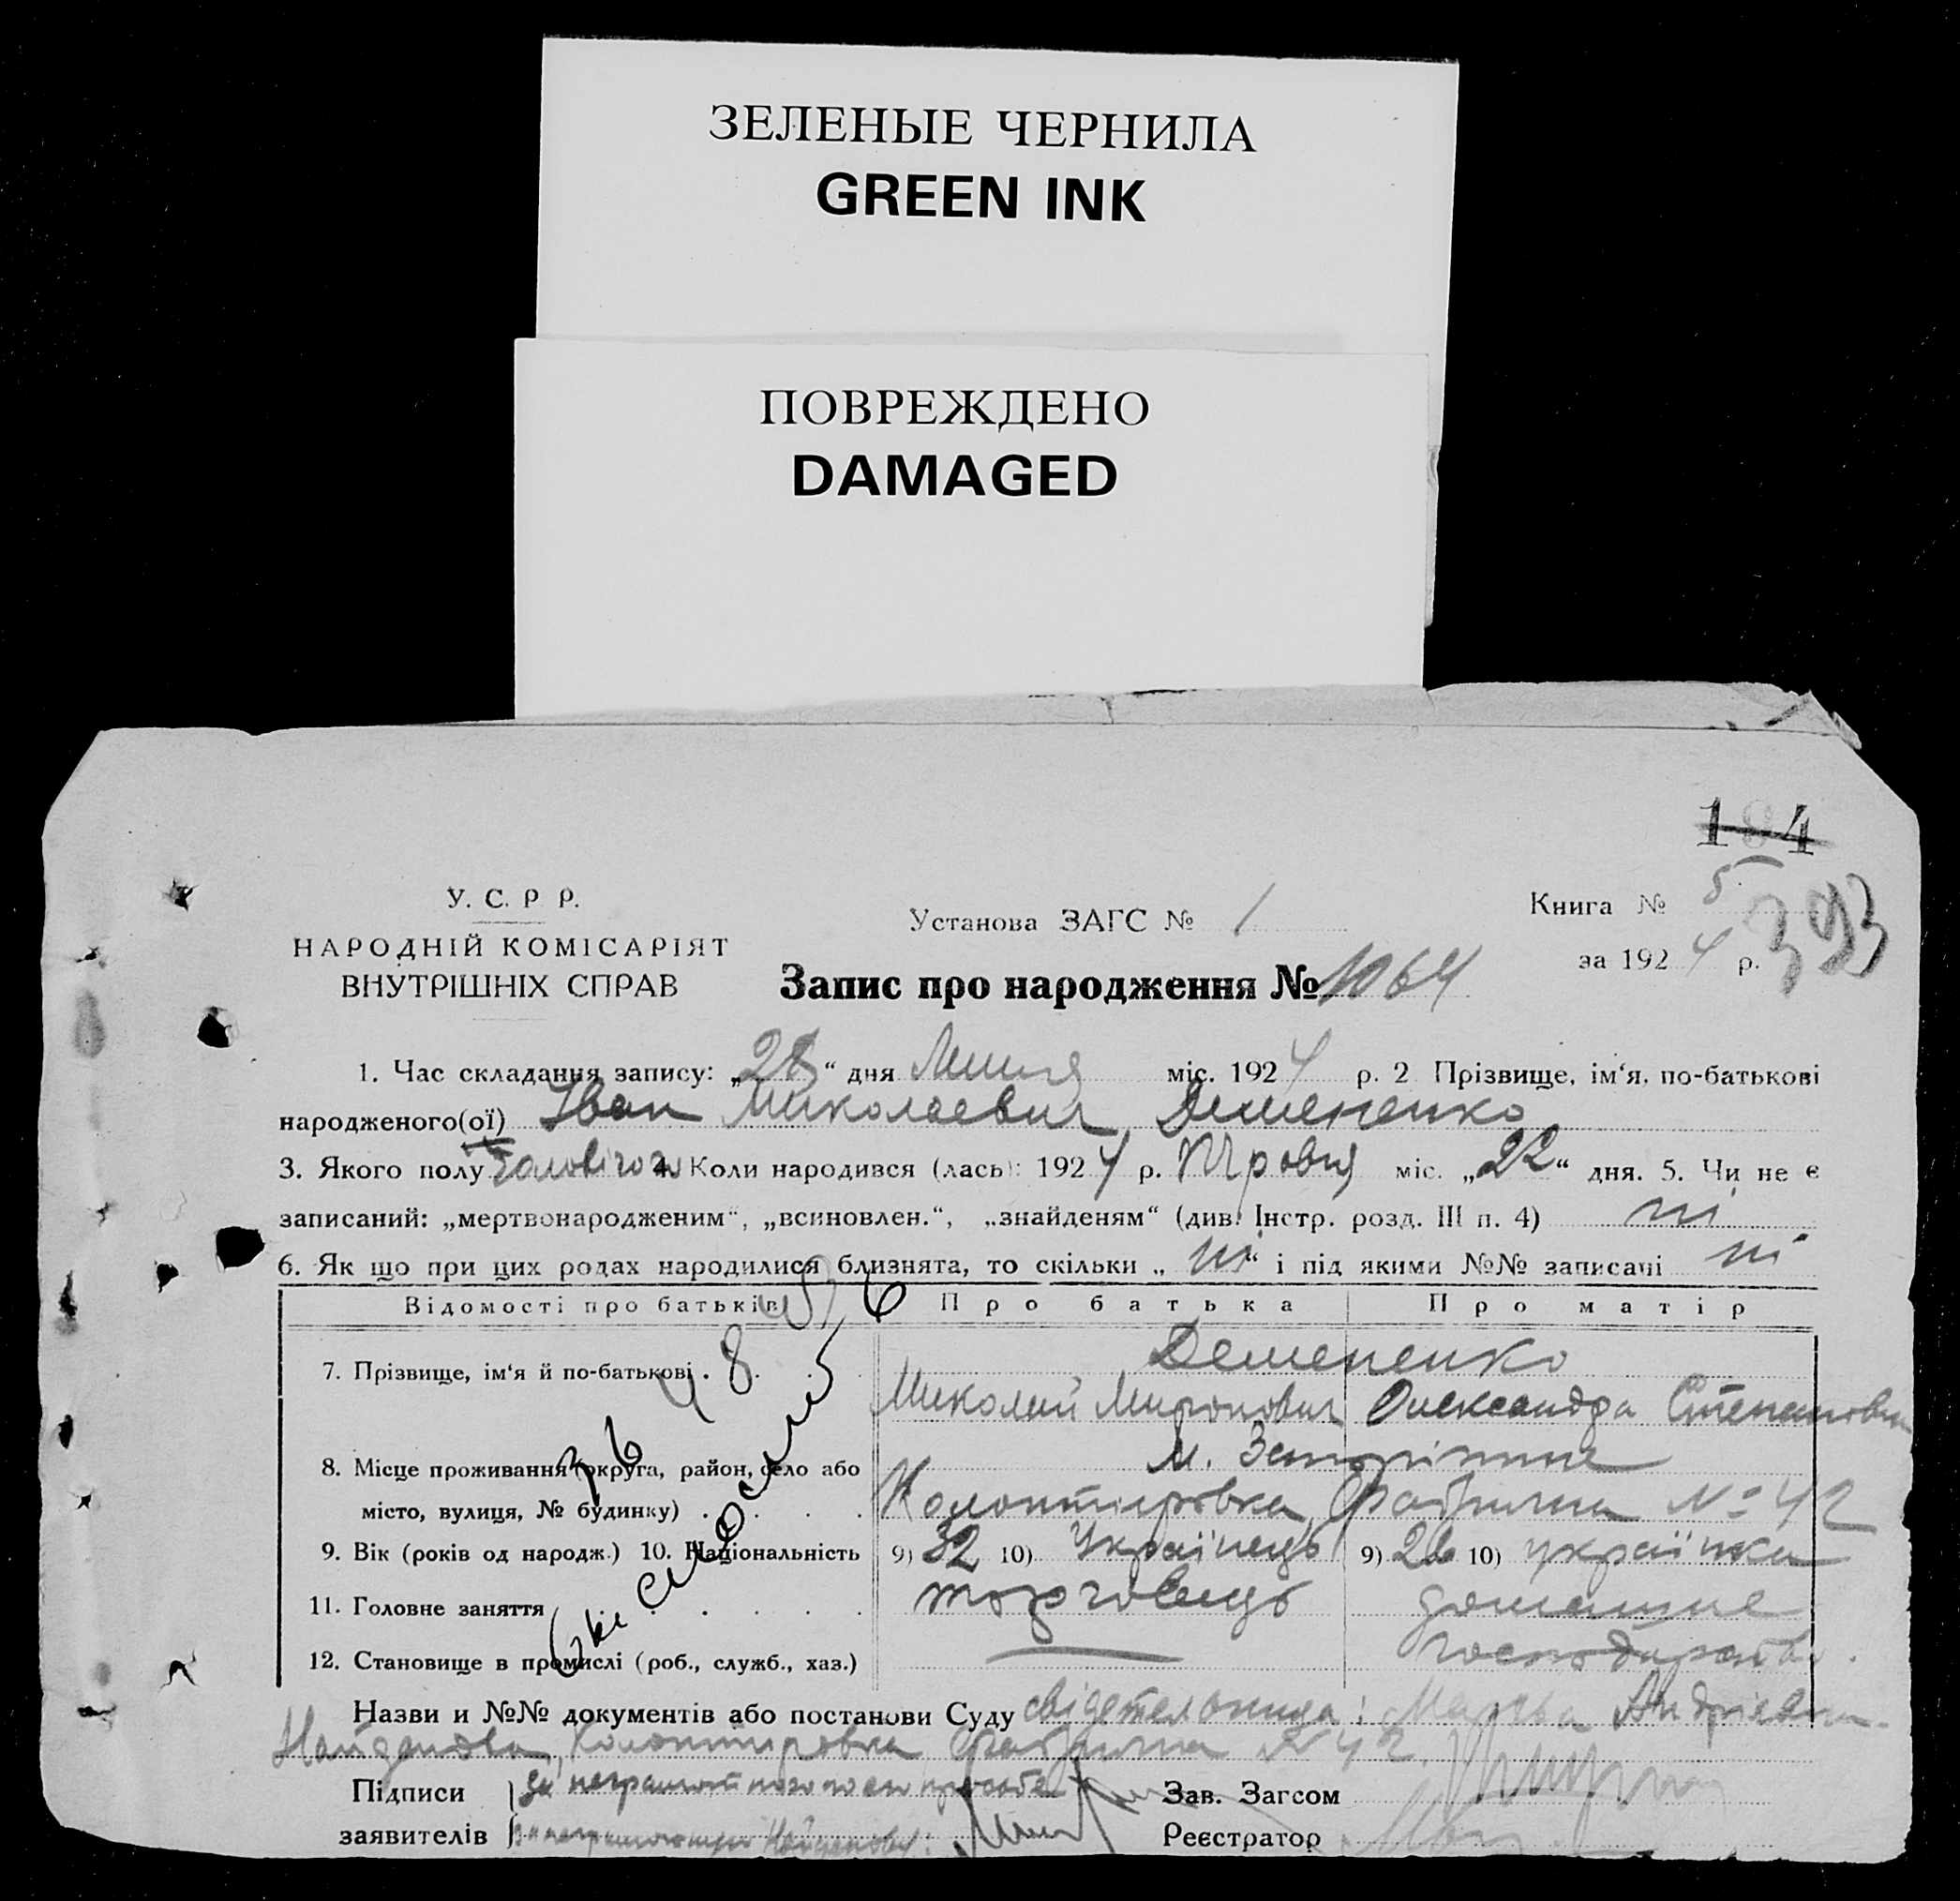 ЗЕЛЕНЫЕ ЧЕРНИЛА
GREEN INK
ПОВРЕЖДЕНО
DAMAGED
184
У. С. Р Р.
НАРОДНІЙ КОМІСАРІЯТ
ВНУТРІШНІХ СПРАВ
Установа ЗАГС № 1
Книга № 5
за 1924 р.
393
Запис про народження № 1064
1. Час складання запису: „28“ дня Липня міс. 1924 р. 2 Прізвище, ім‘я, по-батькові
народженого(ої) Іван Миколаевич Демененко
3. Якого полу чоловічого 4. Коли народився (лась): 1924 р. міс. „22“ дня. 5. Чи не є
записаний: „мертвонародженим“, „всиновлен.“, „знайденям“ (див. Інстр. розд. III п. 4) ні
6. Як що при цих родах народилися близнята, то скільки „ні“ і під якими №№ записані ні
Відомості про батьків Про батька Про матір
7. Прізвище, ім‘я й по-батькові . Демененко
Миколай Миронович Олександра Степановна
8. Місце проживання (округа, район, село або м. Запоріжже
місто, вулиця, № будинку) Фабрична № 42
9. Вік (років од народж.) 10. Національність 9) 32 10) Українець 9) 26 10) українка
11. Головне заняття торговець домашне
господарство
12. Становище в промислі (роб., служб., хаз.)
Назви и №№ документів або постанови Суду Андріевна
Найданова, Фабрична № 42.
Підписи Зав. Загсом
заявителів Реєстратор